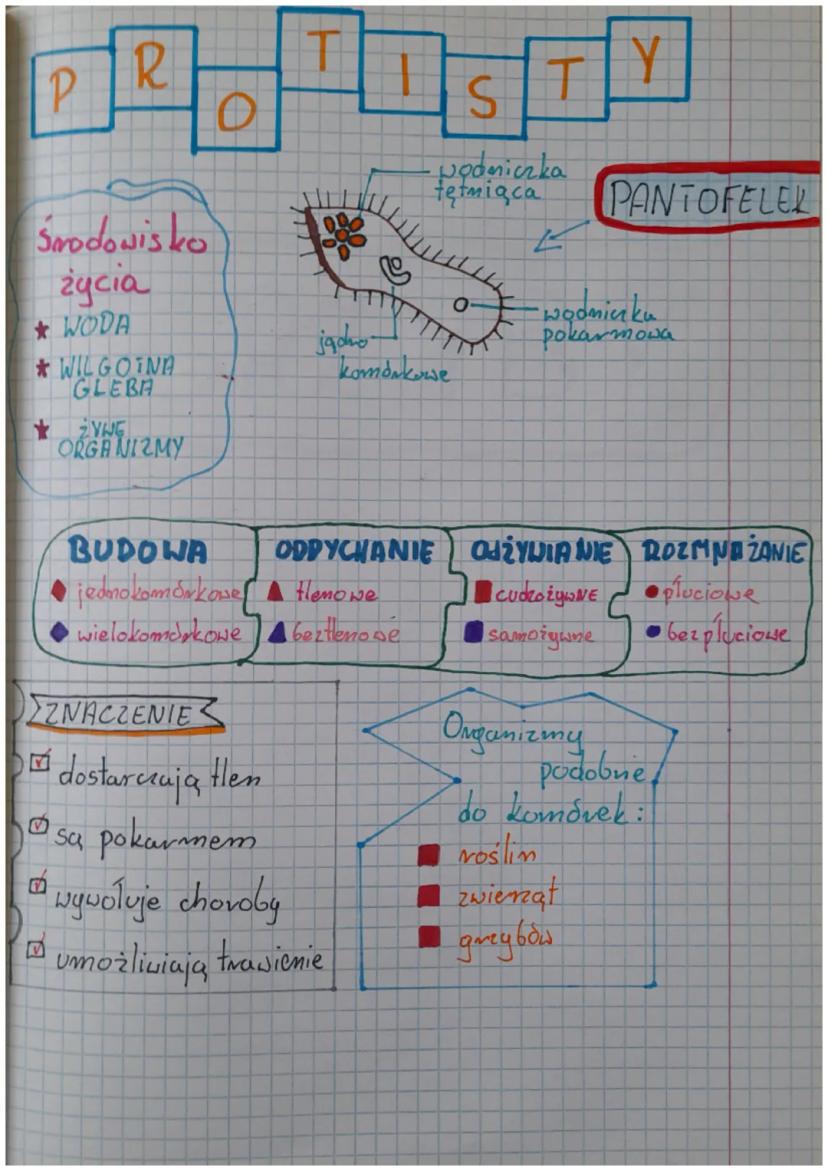 PROTISTY
wodniczka
tętniąca
PANTOFELEK
Środowisko
życia
WODA
WILGOTNA
GLEBA
ŻYWE
ORGANIZMY
wodniczka
pokarmowa
jądro
komórkowe
BUDOWA
jednokomórkowe
wielokomórkowe
ODDYCHANIE
tlenowe
beztlenowe
ODŻYWIANIE
cudzożywne
samożywne
ROZMNAŻANIE
płciowe
bezpłciowe
ZNACZENIE
dostarczają tlen
są pokarmem
wywołuje choroby
umożliwiają trawienie
Organizmy
podobne
do komórek:
roślin
zwierząt
grzybów